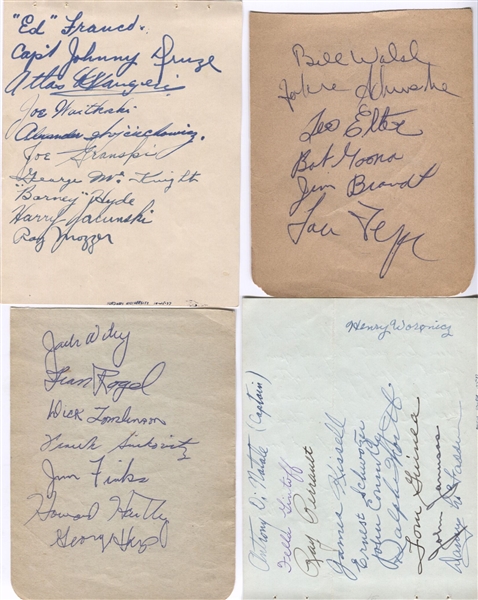 "Ed" Franco.
Capt Johnny Druze
Atlas
Joe Waitkoski
Alexander Wojciechowicz.
Joe Granski
George McKnight
"Barney" Hyde
Harry Jacunski
Ray Mozzer
Bill Walsh
John Schweder
Leo Elter
Bob Gaona
Jim Brandt
Lou Tepe
Jack Wiley
Fran Rogel
Dick Tomlinson
Frank Sinkovitz
Jim Finks
Howard Hartley
George Hays
Henry Woronicz
Anthony Di Natale (Captain)
Fella Gintoff
Ray Perrault
James Kissell
Ernest Schwotzer
John Connolly
Ralph
Tom Guinea
John